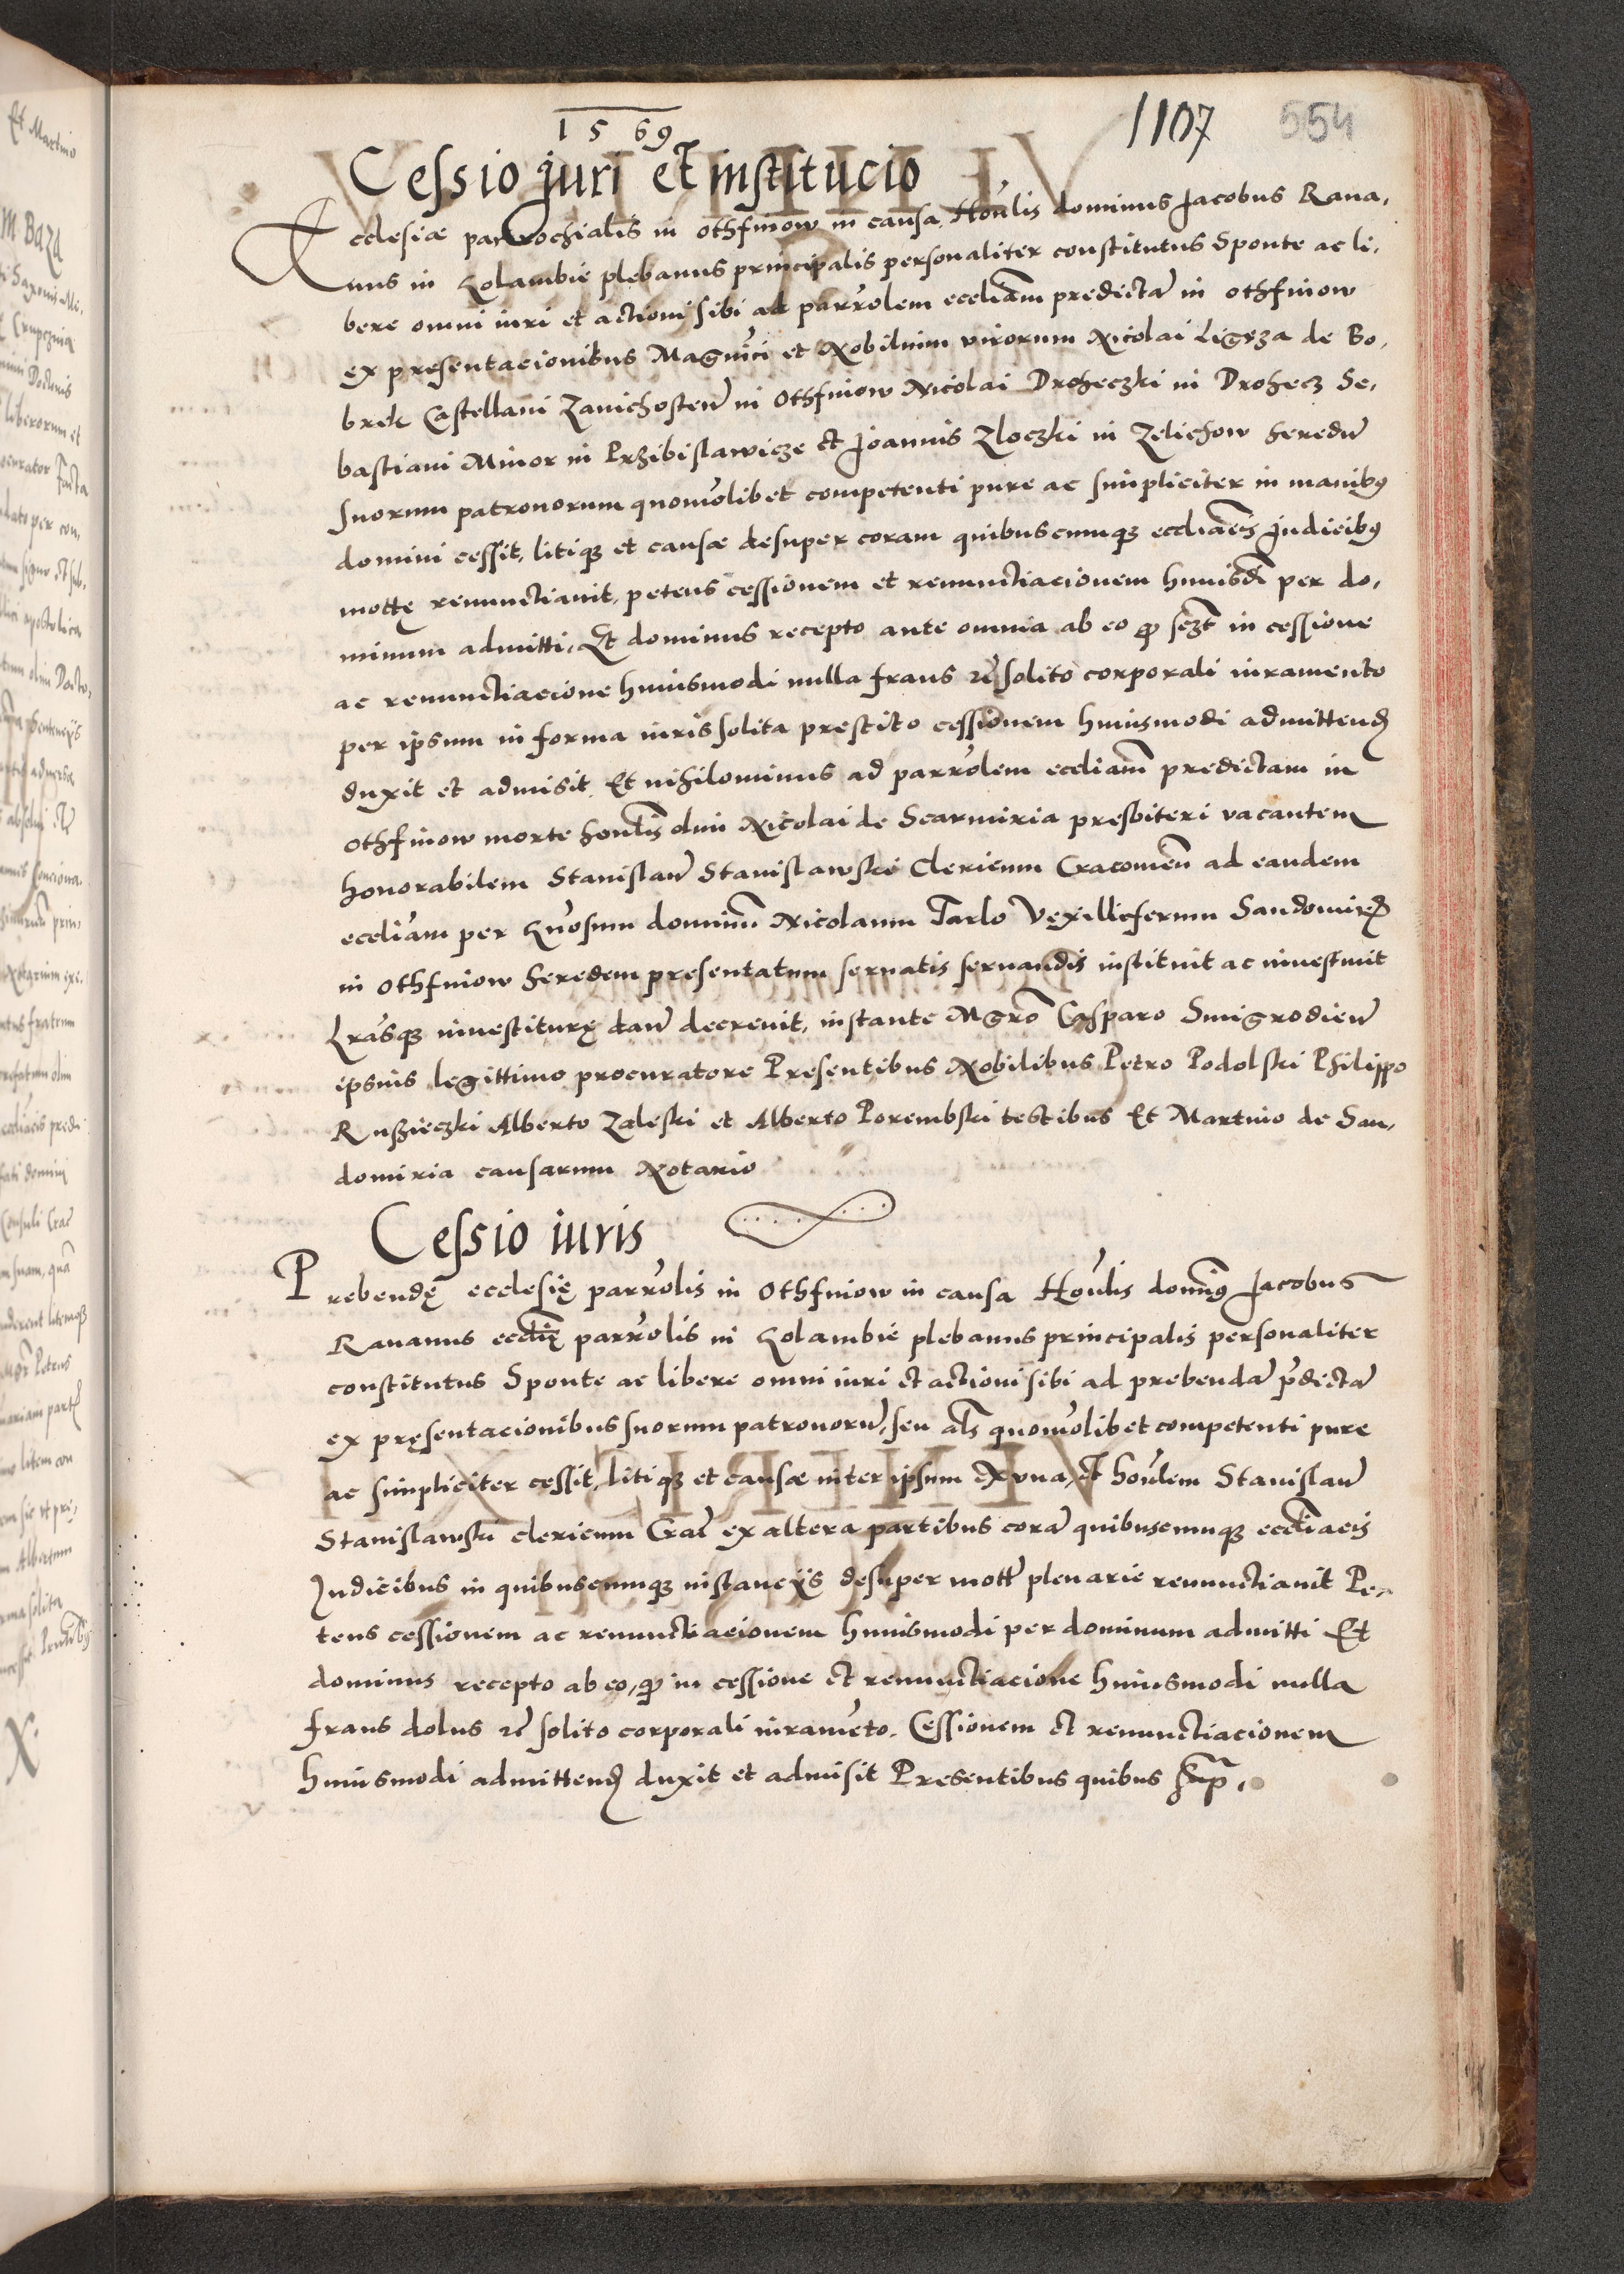 1569
1107 554
Cessio juri et institucio
Ecclesiæ parrochialis in Othfinow in causa, Hon̄lis dominus Jacobus Rava,
nus in Kolambie plebanus principalis personaliter constitutus Sponte ac li,
bere omni iuri et actioni sibi ad parrōlem eccliam̄ predictā in othfinow
ex presentacionibus Magn̄ici et Nobilium virorum Nicolai Ligęza de Bo,
brek Castellani Zavichosten̄ in Othfinow Nicolai Droheczki in Drohecz Se,
bastiani Minor in Przibislawicze et Joannis Zloczki in Zelichow heredū
suorum patronorum quomōlibet competenti pure ac simpliciter in manibꝰ
domini cessit, litiqꝫ et causæ desuper coram quibuscumqꝫ eccliacis Judicibꝰ
mottę renunctiavit, petens cessionem et renunctiacionem huiusd̄i per do,
minum admitti, Et dominus recepto ante omnia ab eo ꝙ sczt̄ in cessione
ac renunctiacione huiusmodi nulla fraus ꝛc̄ solito corporali iuramento
per ipsum in forma iuris solita prestito cessionem huiusmodi admittendꝫ
duxit et admisit. Et nihilominus ad parrōlem eccliam̄ predictam in
Othfinow morte honlis̄ olim Nicolai de Scarmiria presbiteri vacantem
honorabilem Stanislaū Stanislawski Clericum Cracovien̄ ad eandem
eccliām per Gn̄osum dominū Nicolaum Tarlo Vexilliferum Sandomireñ
in Othfinow heredem presentatum servatis servandis instituit ac investivit
Lrāsqꝫ investiturę dan̄ decrevit, instante Mgrō Casparo Smigrodien̄
ipsius legittimo procuratore Presentibus Nobilibus Petro Podolski Philippo
Ruszieczki Alberto Zaleski et Alberto Porembski testibus Et Martino de San,
domiria causarum Notario
Cessio iuris
Prebendę ecclesię parrōlis in Othfinow in causa Hon̄lis domin̄ꝰ Jacobus
Ravanus ecclię̄ parrōlis in Kolambie plebanus principalis personaliter
constitutus Sponte ac libere omni iuri et actioni sibi ad prebendā p̄dictā
ex pręsentacionibus suorum patronorū, seu als̄ quomōlibet competenti pure
ac simpliciter cessit, litiqꝫ et causæ inter ipsum ex una, et hon̄lem Stanislaū
Stanislawski clericum Crac̄ ex altera partibus corā quibuscumqꝫ eccliacis
Judicibus in quibuscumqꝫ instancijs desuper mott̄ plenarie renunctiavit Pe,
tens cessionem ac renunctiacionem huiusmodi per dominum admitti Et
dominus recepto ab eo, ꝙ in cessione et renunctiacione huiusmodi nulla
fraus dolus ꝛc̄ solito corporali iuramēto. Cessionem et renunctiacionem
huiusmodi admittendꝫ duxit et admisit Presentibus quibus sup̄.